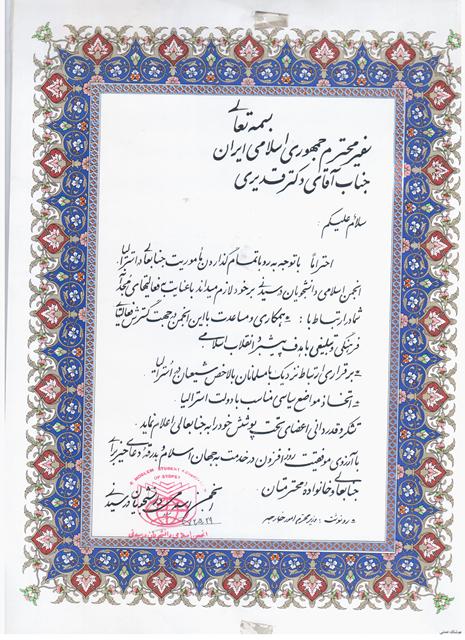 بسمه تعالی
سفیر محترم جمهوری اسلامی ایران
جناب آقای دکتر قدیری
سلام علیکم:
احتراماً با توجه به رو باتمام گذاردن مأموریت جنابعالی در استرالیا
انجمن اسلامی دانشجویان در سیدنی بر خود لازم میداند با عنایت به فعالیتهای
شما در ارتباط با: ۰ همکاری و مساعدت با این انجمن در جهت گسترش فعالیتهای
فرهنگی و تبلیغی با هدف پیشبرد انقلاب اسلامی
۰ برقراری ارتباط نزدیک با مسلمانان بالاخص شیعیان در استرالیا
۰ اتخاذ مواضع سیاسی مناسب با دولت استرالیا
تشکر و قدردانی اعضای تحت پوشش خود را به جنابعالی اعلام نماید.
با آرزوی موفقیت روزافزون در خدمت به جهان اسلام بدرقه دعای خیر برای
جنابعالی و خانواده محترمتان.
MOSLEM STUDENT
OF SYDNEY
انجمن اسلامی دانشجویان در سیدنی
انجمن اسلامی دانشجویان در سیدنی
۰ رونوشت: وزیر محترم امور خارجه